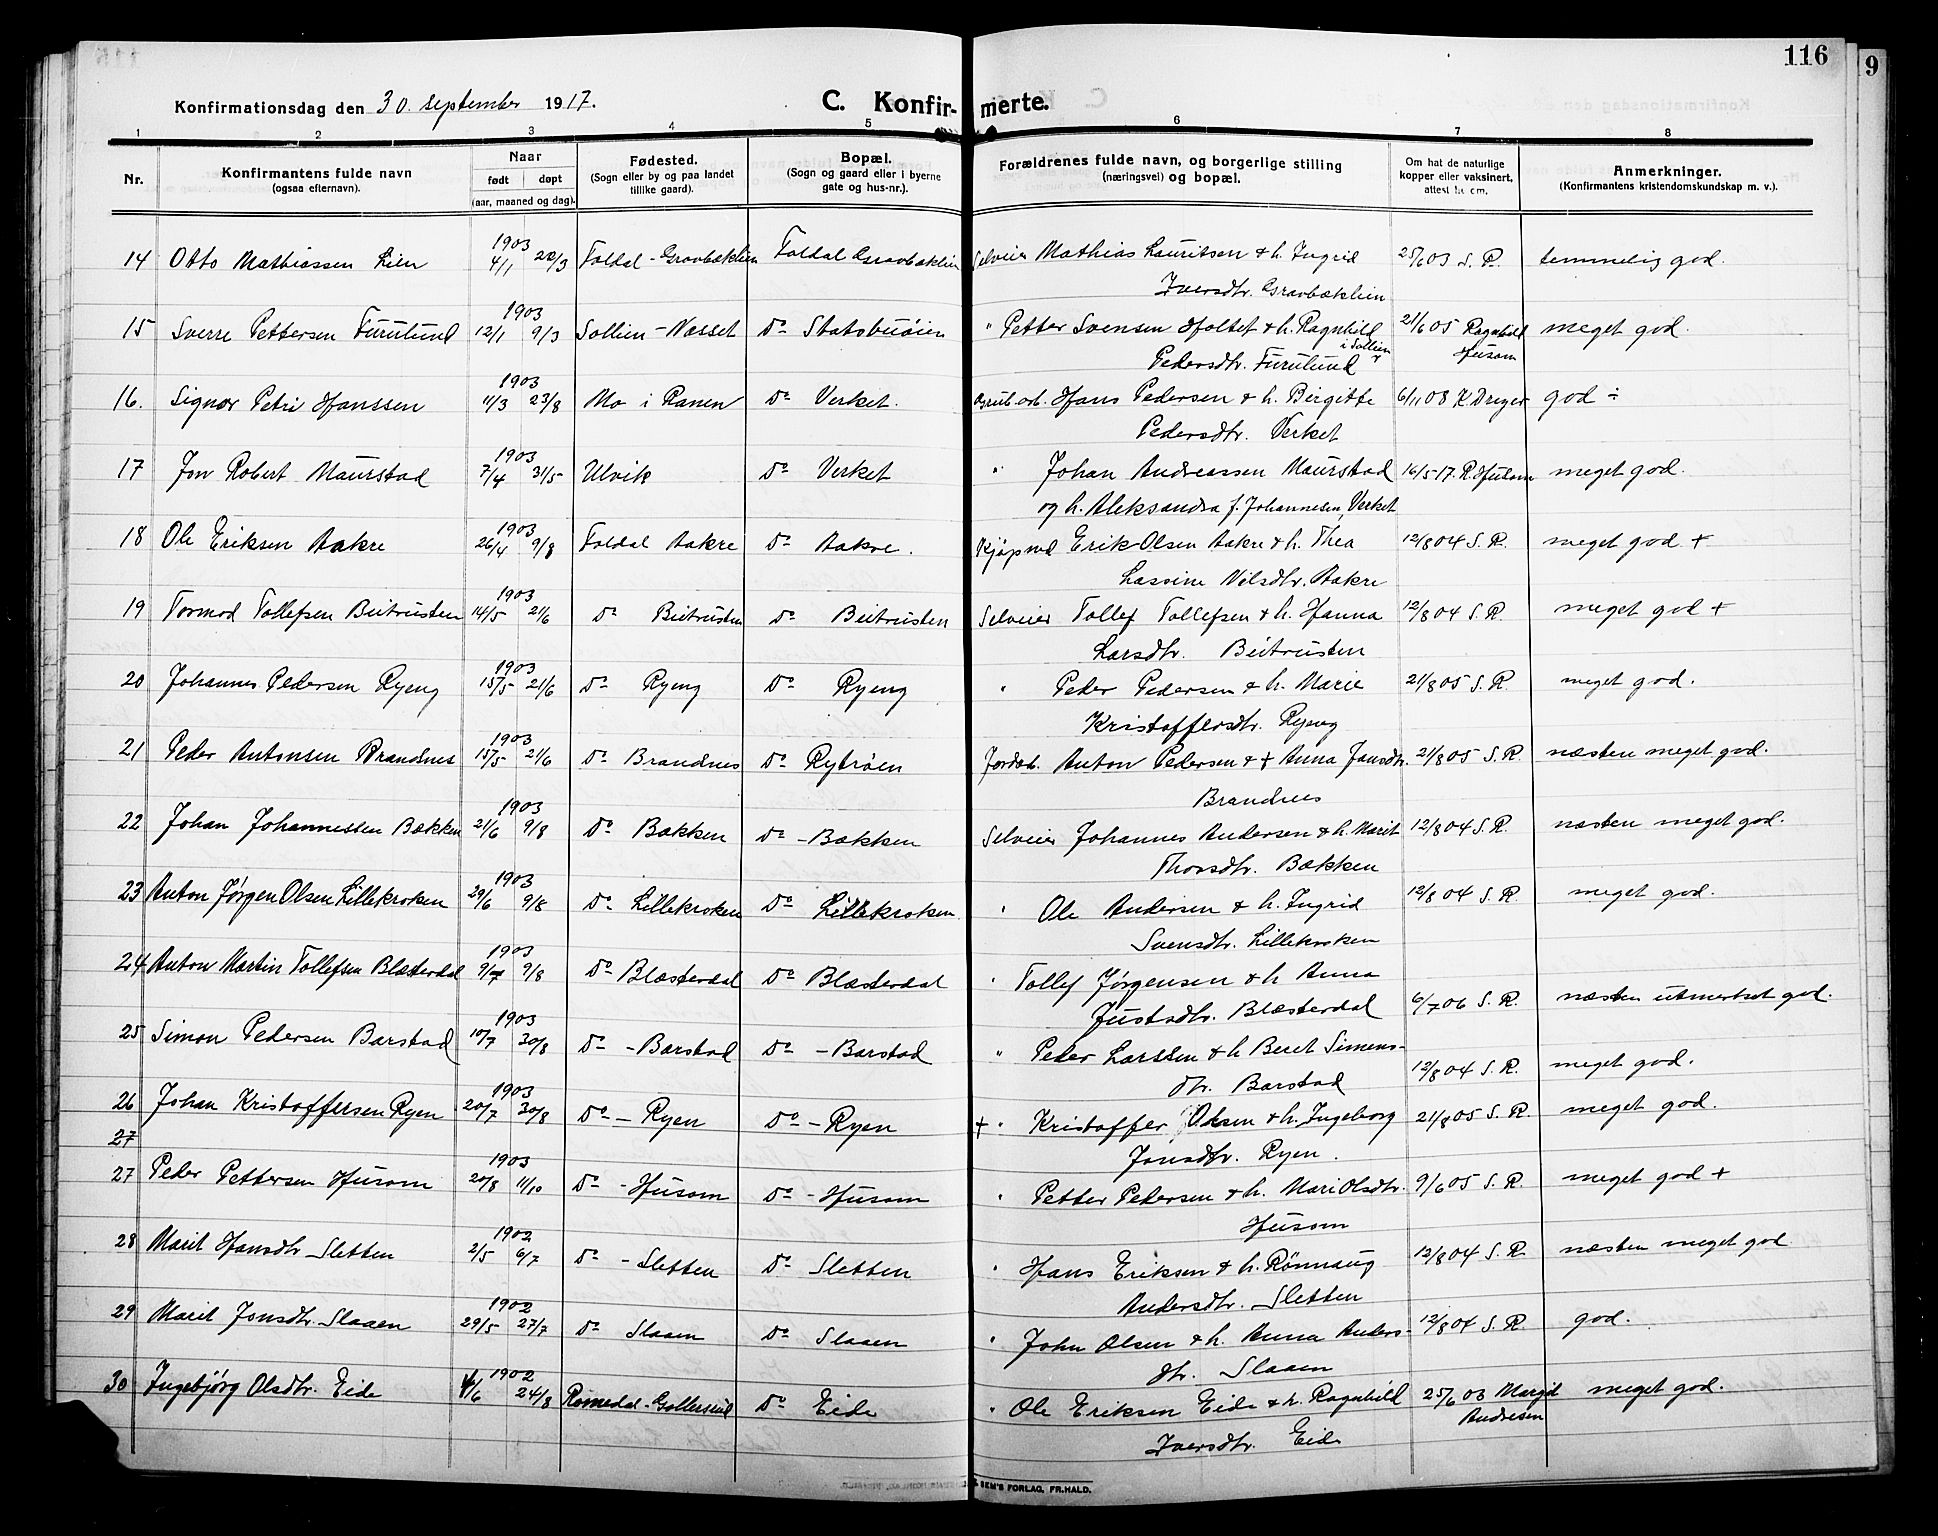 116
9
Konfirmationsdag den 30. september 1917.
C. Konfirmerte.
1 2 3 4 5 6 7 8
Nr.
Konfirmantens fulde navn
(ogsaa efternavn).
Naar
født døpt
(aar, maaned og dag).
Fødested.
(Sogn eller by og paa landet
tillike gaard).
Bopæl.
(Sogn og gaard eller i byerne
gate og hus-nr.).
Forældrenes fulde navn, og borgerlige stilling
(næringsvei) og bopæl.
Om hat de naturlige
kopper eller vaksinert,
attest
Anmerkninger.
(Konfirmantens kristendomskundskap m. v.).
1903
14 Otto Mathiassen Lien 4/1 22/3 Foldal - Gravbæklien Foldal Gravbæklien Selveier Mathias Lauritsen & h. Ingrid 25/6 03 S. R. temmelig god.
Iversdtr. Gravbæklien
1903
15 Sverre Pettersen Furulund 12/1 9/3 Sollien - Næsset Do Statsbuøien " Petter Svensen Holtet & h. Ragnhild 21/6 05 Ragnhild meget god.
i Sollien Husom
Pedersdtr. Furulund
1903
16. Signar Petri Hanssen 11/3 23/8 Mo i Ranen Do Verket. Grub.arb. Hans Pedersen & h. Birgitte 6/11 08 K Dreyer god ÷
Pedersdtr. Verket
1903
17 Jon Robert Maurstad 7/4 31/5 Ulvik Do Verket " Johan Andreassen Maurstad 16/5 17. R. Husom meget god.
og h. Aleksandra f. Johannesen, Verket
1903
18 Ole Eriksen Aakre 26/4 9/8 Foldal Aakre Do Aakre. Kjøpmd Erik Olsen Aakre & h. Thea 12/8 04 S. R. meget god +
Lassine Nilsdtr. Aakre
1903
19 Tormod Tollefsen Beitrusten 14/5 21/6 Do Beitrusten Do Beitrusten Selveier Tollef Tollefsen & h. Hanna 12/8 04 S. R. meget god +
Larsdtr. Beitrusten
1903
20 Johannes Pedersen Ryeng 15/5 21/6 Do Ryeng Do Ryeng " Peder Pedersen & h. Marie 21/8 05 S. R. meget god.
Kristoffersdtr. Ryeng
1903
21 Peder Antonsen Brandnes 15/5 21/6 Do Brandnes Do Rytrøen Jordarb. Anton Pedersen & + Anna Jansdtr. 21/8 05 S. R. næsten meget god.
Brandnes
1903
22 Johan Johannessen Bækken 21/6 9/8 Do Bækken Do - Bækken Selveier Johannes Andersen & h. Marit 12/8 04 S. R. næsten meget god.
Thorsdtr. Bækken
1903
23 Anton Jørgen Olsen Lillekroken 29/6 9/8 Do Lillekroken Do Lillekroken " Ole Andersen & h. Ingrid 12/8 04 S. R. meget god.
Svensdtr. Lillekroken
1903
24 Anton Martin Tollefsen Blæsterdal 9/7 9/8 Do Blæsterdal Do Blæsterdal " Tollef Jørgensen & h Anna
Justsdtr. Blæsterdal 6/7 06 S. R. næsten utmerket god.
1903
25 Simon Pedersen Barstad 10/7 30/8 Do - Barstad Do - Barstad " Peder Larssen & h Beret Simens-
dtr. Barstad 12/8 04 S. R. meget god.
1903
26 Johan Kristoffersen Ryen 20/7 30/8 Do - Ryen Do - Ryen + " Kristoffer Olsen & h. Ingeborg 21/8 05 S. R. meget god.
27
Jonsdtr. Ryen.
1903
27 Peder Pettersen Husom 20/8 11/10 Do - Husom Do - Husom " Petter Pedersen & h. Mari Olsdtr. 9/6 05 S. R. meget god +
Husom
1902
28 Marit Hansdtr Sletten 2/5 6/7 Do - Sletten Do Sletten " Hans Eriksen & h. Rønnaug 12/8 04 S. R. næsten meget god
Andersdtr. Sletten
1902
29 Marit Jonsdtr. Slaaen 29/5 27/7 Do Slaaen Do Slaaen " John Olsen & h. Anna Anders- 12/8 04 S. R. god.
dtr. Slaaen
1902
30 Ingebjørg Olsdtr. Eide /6 24/8 Romedal - Do Eide " Ole Eriksen Eide & h. Ragnhild 25/6 03 Margit meget god.
Andresen
Iversdtr. Eide
SEM'S FORLAG, FR.HALD.